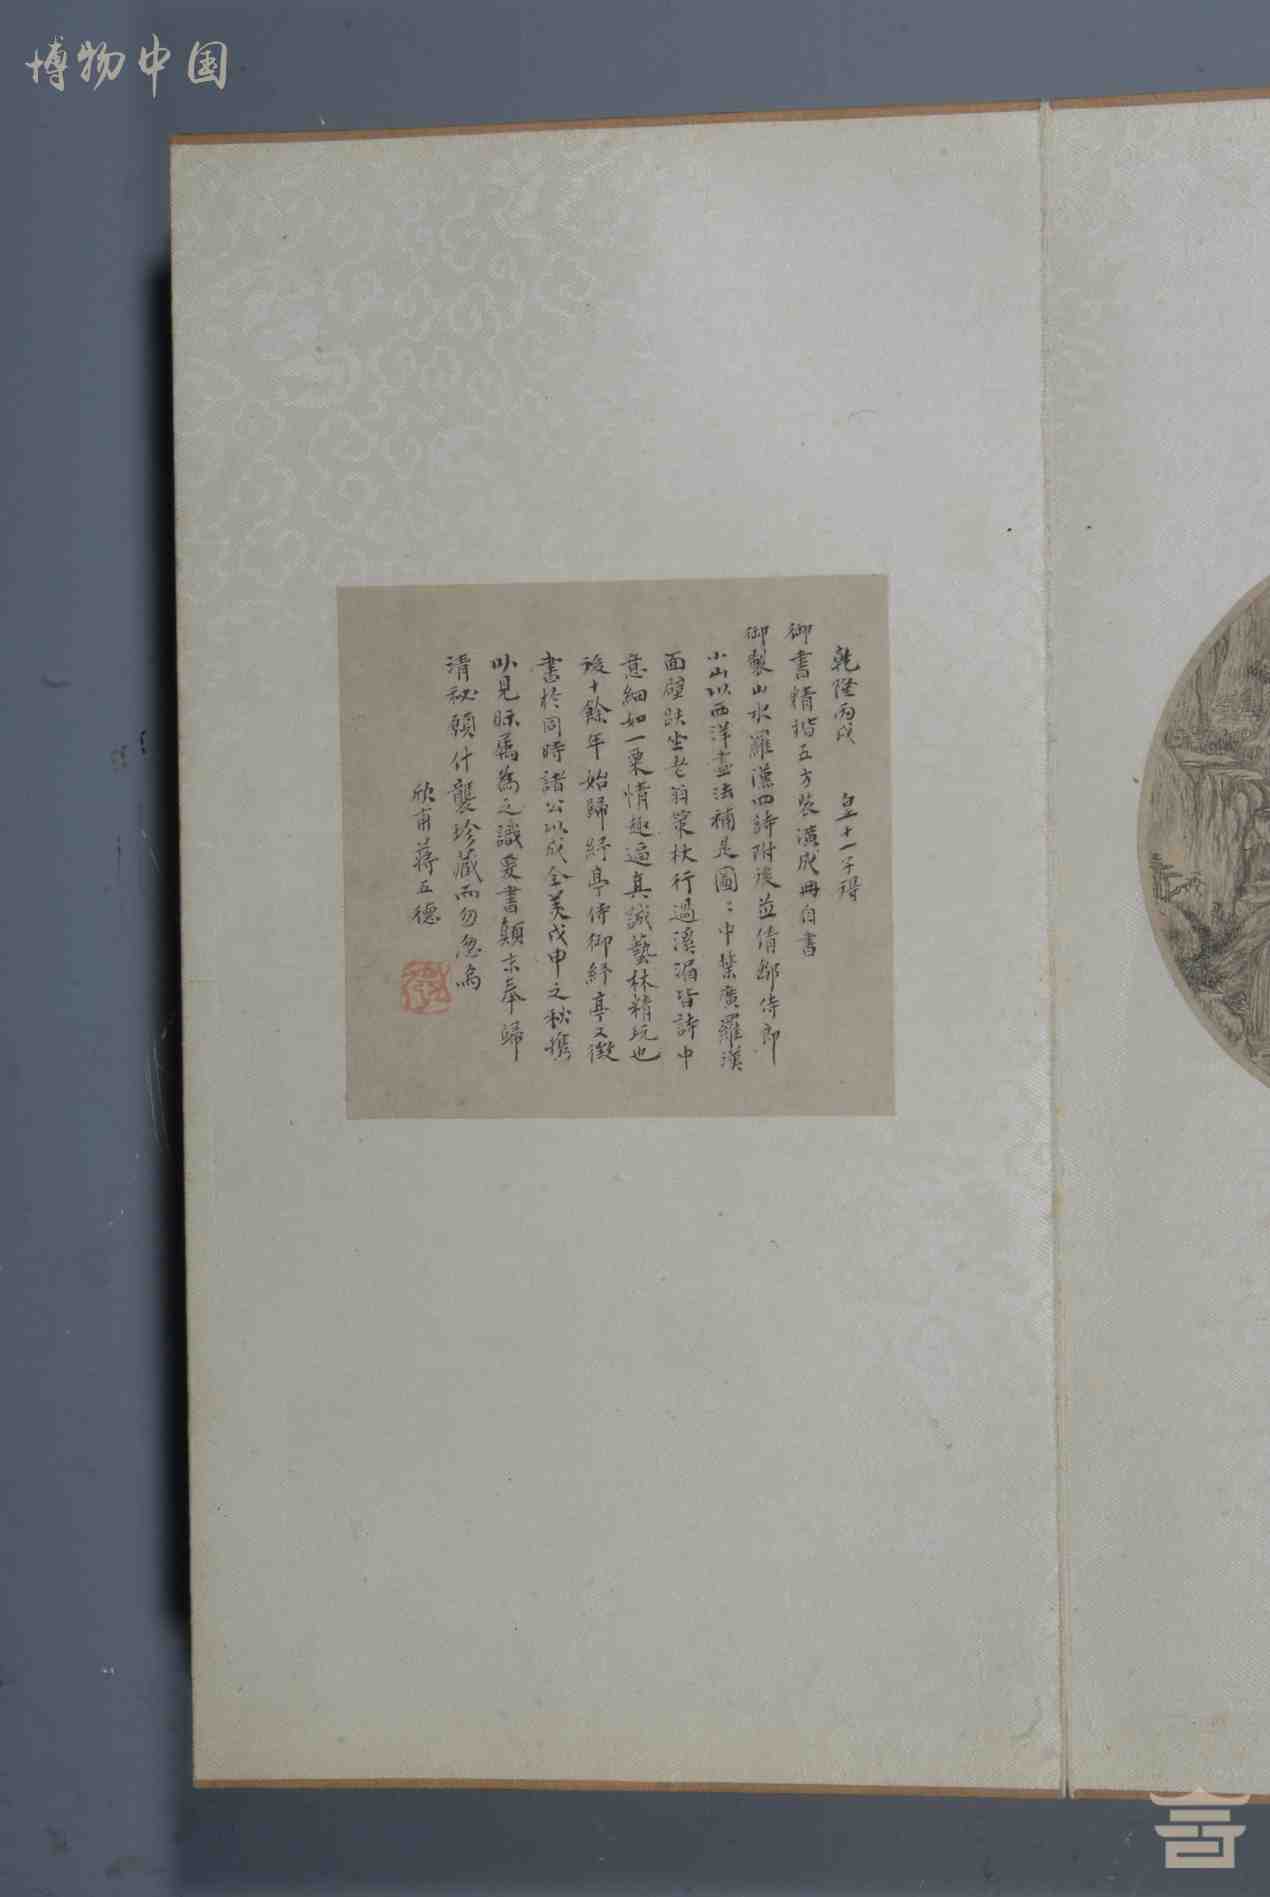 博物中国
乾隆丙戌 皇十一子得
御書精揩五方裝潢成冊自書
御製山水羅漢四詩附後並倩鄒侍郎
小山以西洋畫法補是圖：中葉廣羅漢
面壁趺坐老翁策杖行過溪渦皆詩中
意細如一粟情趣逼真誠藝林精玩也
後十餘年始歸紓亭侍御紓亭又徵
書於同時諸公以成全美戊申之秋攜
以見眎屬為之識爰書顛末奉歸
清秘願什襲珍藏而勿忽焉
欣甫蔣五德